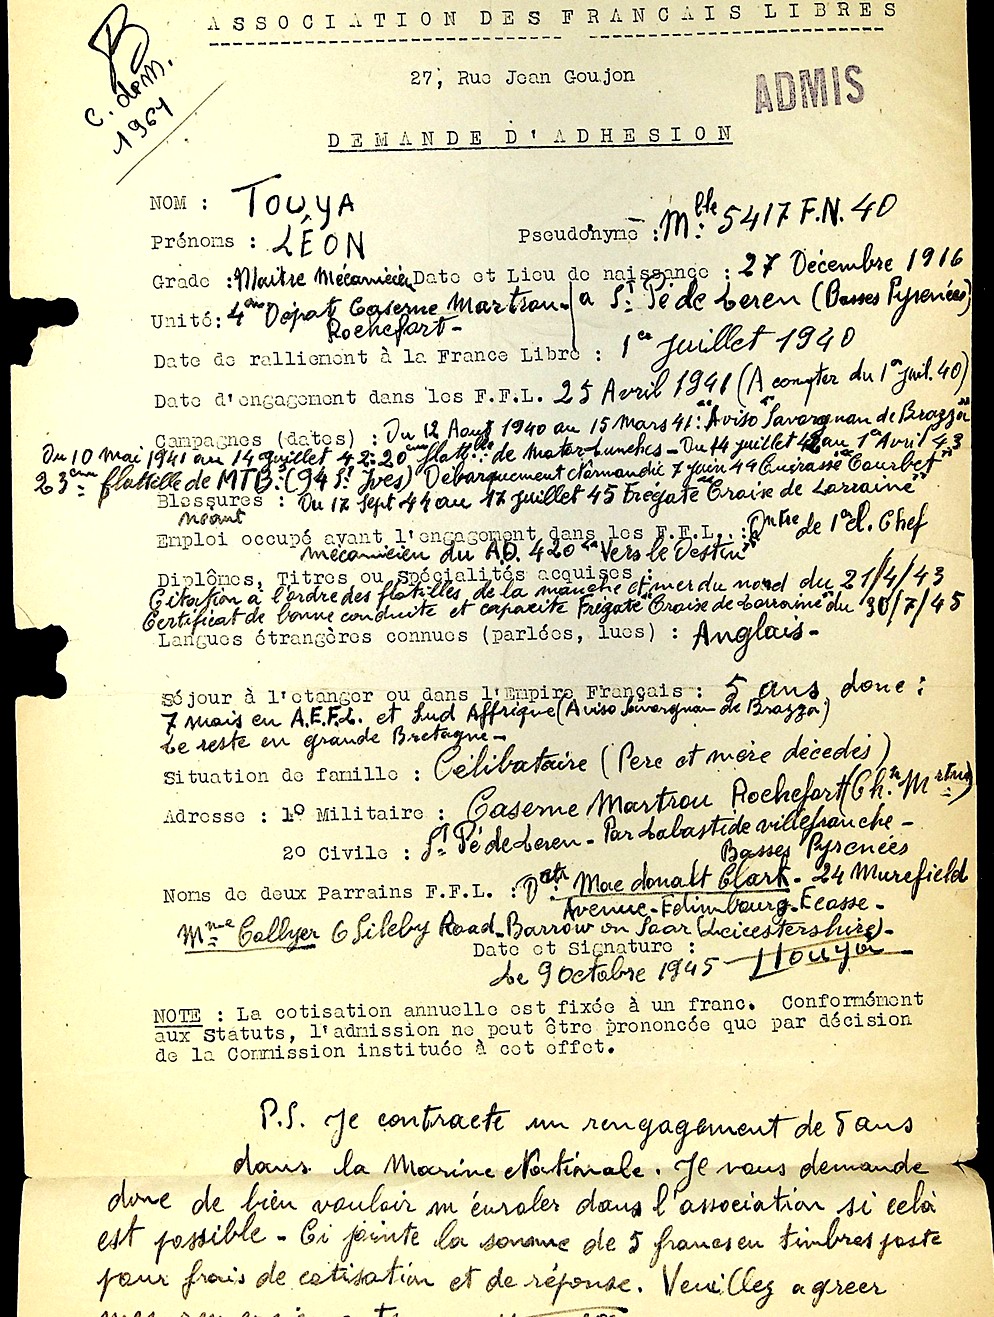 ASSOCIATION DES FRANCAIS LIBRES
27, Rue Jean Goujon
ADMIS
B
C. de M.
1964
DEMANDE D'ADHESION
NOM : TOUYA
Prénoms : LÉON Pseudonyme : Mle 5417 F.N. 40
Grade : Maitre Mécanicien Date et Lieu de naissance : 27 Décembre 1916
Unité : 4me Dépot Caserne Martrou - à St Pé de Leren (Basses Pyrenées)
Rochefort -
Date de ralliement à la France Libre : 1er Juillet 1940
Date d'engagement dans les F.F.L. 25 Avril 1941 (A compter du 1er Juil. 40)
Campagnes (dates) : Du 12 Aout 1940 au 15 Mars 41: "Aviso Savorgnan de Brazza"
Du 10 mai 1941 au 14 juillet 42: 20eme flotlle de Motor-Lunches - Du 14 juillet 42 au 1er Avril 43
23eme flottelle de MTB: (94 St Yves) Débarquement Normandie 7 juin 44 Cuirassé "Courbet"
Blessures : Du 17 Sept 44 au 17 Juillet 45 Frégate "Croise de Lorraine"
néant
Emploi occupé avant l'engagement dans les F.F.L. : de 1er cl. Chef
mécanicien du AD. 420 "Vers le Destin"
Diplômes, Titres ou Spécialités acquises :
Citation à l'ordre des flotilles, de la manche et mer du nord du 21/4/43
Certificat de bonne conduite et capacité Frégate "Croise de Lorraine" du 30/7/45
Langues étrangères connues (parlées, lues) : Anglais -
Séjour à l'etanger ou dans l'Empire Français : 5 ans donc :
7 mois en A.E.F.L. et Sud Affrique (Aviso Savorgnan de Brazza)
Le reste en grande Bretagne -
Situation de famille : Célibataire (Pere et mère décedés)
Adresse : 1º Militaire : Caserne Martrou Rochefort (Ch. Mme)
2º Civile : St Pé de Leren - Par Labastide villefranche -
Basses Pyrenées
Noms de deux Parrains F.F.L. : Mac donalt Clark - 24 Murefield
Avenue - Edimbourg - Ecosse -
Mme Collyer 6 Sileby Road - Barrow on Soar (Leicestershire) -
Date et Signature :
Le 9 Octobre 1945 Touya
NOTE : La cotisation annuelle est fixée à un franc. Conformément
aux Statuts, l'admission ne peut être prononcée que par décision
de la Commission instituée à cet effet.
P.S. Je contracte un rengagement de 5 ans
dans la Marine Nationale. Je vous demande
donc de bien vouloir m'enroler dans l'association si celà
est possible - Ci jointe la somme de 5 francs en timbres poste
pour frais de cotisation et de réponse. Veuillez agreer